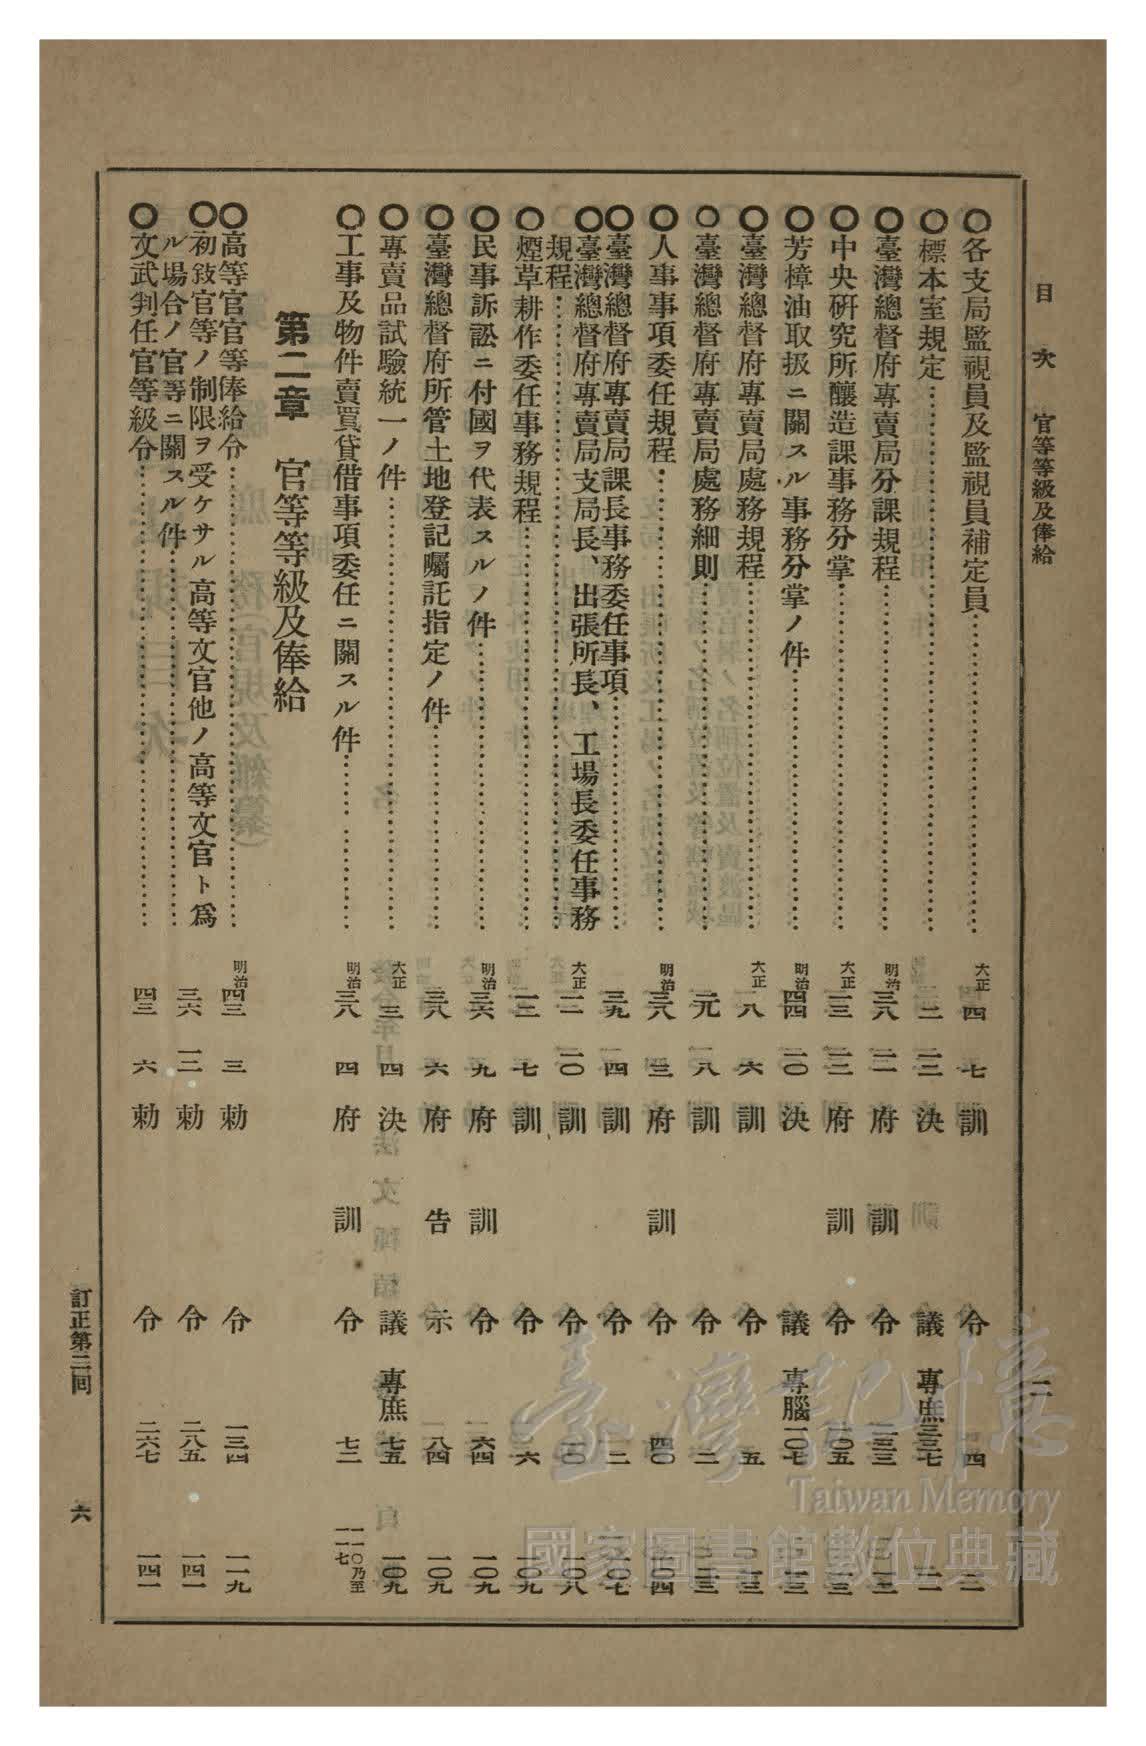 目次 官等等級及俸給 二
〇各支局監視員及監視員補定員 大正 四 七 訓令 四
〇標本室規定 決議 專庶三三七
〇臺灣總督府專賣局分課規程 明治三八 府訓令
〇中央研究所釀造課事務分掌 大正 府訓令
〇芳樟油取扱ニ關スル事務分掌ノ件 明治四四 一〇 決議 專腦一〇七
〇臺灣總督府專賣局處務規程 大正 八 六 訓令 五
〇臺灣總督府專賣局處務細則 元 八 訓令 二
〇人事事項委任規程 明治三八 三 府訓令 四〇
〇臺灣總督府專賣局課長事務委任事項 三九 四 訓令
〇臺灣總督府專賣局支局長、出張所長、工場長委任事務
規程 大正 一〇 訓令 一〇八
〇煙草耕作委任事務規程 七 訓令 六 一〇九
〇民事訴訟ニ付國ヲ代表スルノ件 明治三六 九 府訓令 一六四 一〇九
〇臺灣總督府所管土地登記囑託指定ノ件 三八 六 府告示 八四 一〇九
〇專賣品試驗統一ノ件 大正 三 四 決議 專庶七五 一〇九
〇工事及物件賣買貸借事項委任ニ關スル件 明治三八 四 府訓令 七三 一一〇乃至一一七
第二章 官等等級及俸給
〇高等官官等俸給令 明治四三 三 勅令 一三四 一一九
〇初敍官等ノ制限ヲ受ケサル高等文官他ノ高等文官ト爲
ル場合ノ官等ニ關スル件 三六 一二 勅令 二八五 一四一
〇文武判任官等級令 四三 六 勅令 二六七 一四一
訂正第三回 六
臺灣記憶
Taiwan Memory
國家圖書館數位典藏